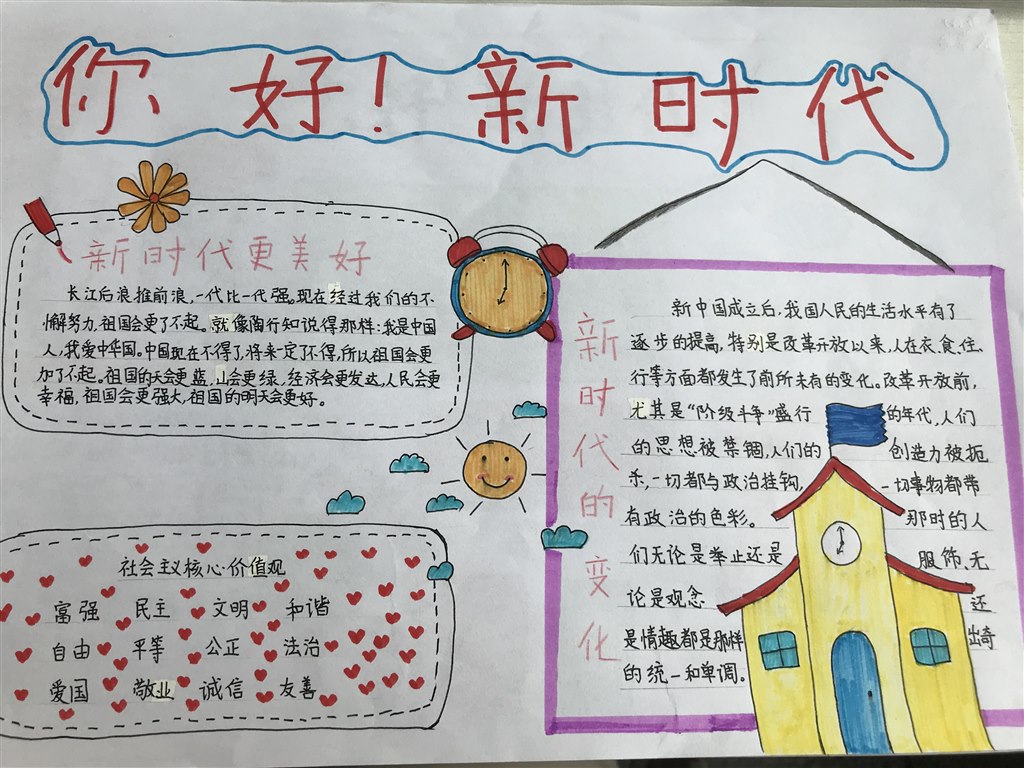 你好！新时代
新时代更美好
长江后浪推前浪，一代比一代强。现在经过我们的不
懈努力，祖国会更了不起。就像陶行知说得那样：我是中国
人，我爱中华国。中国现在不得了，将来一定了不得，所以祖国会更
加了不起。祖国的天会更蓝，山会更绿，经济会更发达，人民会更
幸福，祖国会更强大，祖国的明天会更好。
社会主义核心价值观
富强 民主 文明 和谐
自由 平等 公正 法治
爱国 敬业 诚信 友善
新时代的变化
新中国成立后，我国人民的生活水平有了
逐步的提高，特别是改革开放以来，人在衣、食、住、
行等方面都发生了前所未有的变化。改革开放前，
尤其是“阶级斗争”盛行的年代，人们
的思想被禁锢，人们的创造力被扼
杀，一切都与政治挂钩，一切事物都带
有政治的色彩。那时的人
们无论是举止还是服饰、无
论是观念还
是情趣都是那样出奇
的统一和单调。